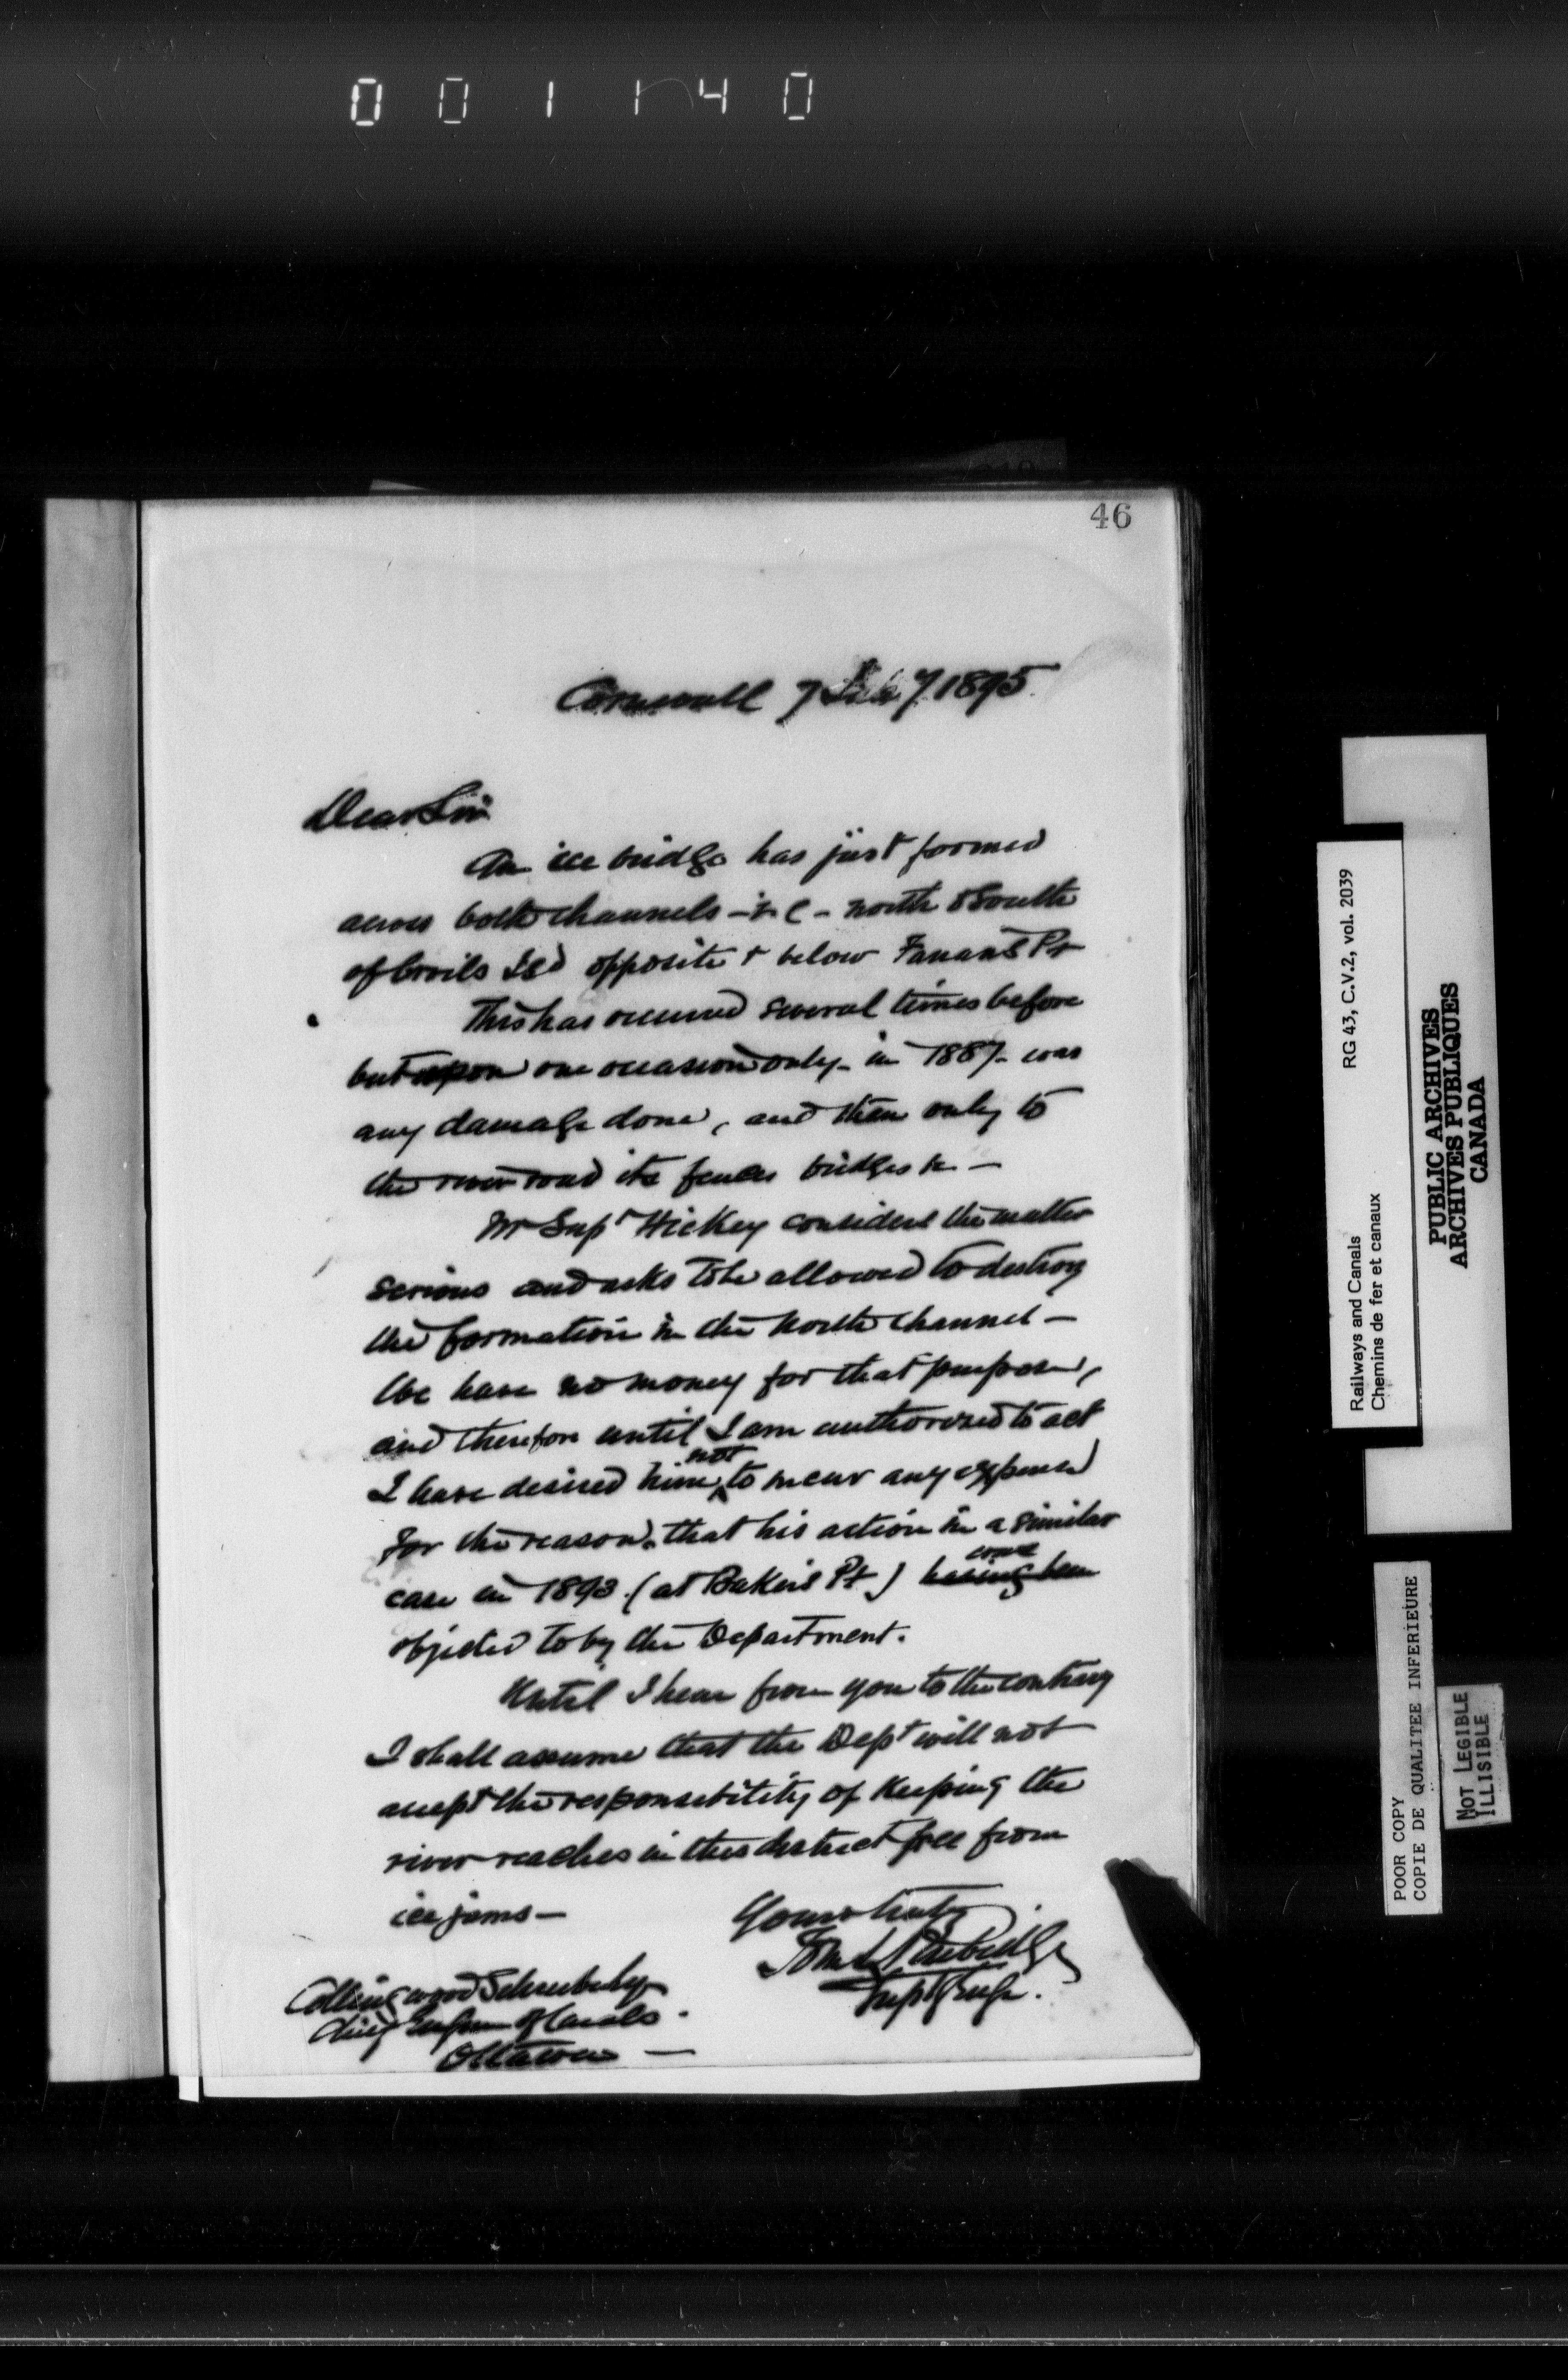 001140
46
Cornwall 7 Feby 1895
Dear Sir
An ice bridge has just formed
across both channels - i.e - north & South
of Croils Isd opposite & below Farrans Pt
This has occurred several times before
but upon one occasion only - in 1887 - was
any damage done, and then only to
the river road its fences bridges &c -
Mr Supt Hickey considers the matter
serious and asks to be allowed to destroy
the formation in the North Channel -
We have no money for that purpose,
and therefore until I am authorized to act
I have desired him not to incur any expense
for the reason, that his action in a similar
case in 1893 (at Bakers Pt) having been
objected to by the Department.
Until I hear from you to the contrary
I shall assume that the Dept will not
accept the responsibility of keeping the
river reaches in this district free from
ice jams -
Yours truly
Supt Engr.
Collingwood Schreiber Esq
Chief Engineer of Canals
Ottawa -
Railways and Canals RG 43, C.V.2, vol. 2039
Chemins de fer et canaux
PUBLIC ARCHIVES
ARCHIVES PUBLIQUES
CANADA
POOR COPY
COPIE DE QUALITEE INFERIEURE
NOT LEGIBLE
ILLISIBLE